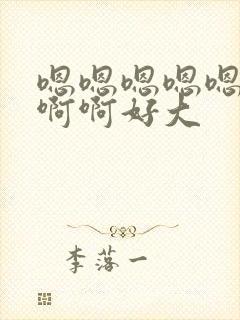 嗯嗯嗯嗯嗯
啊啊好大
李落一